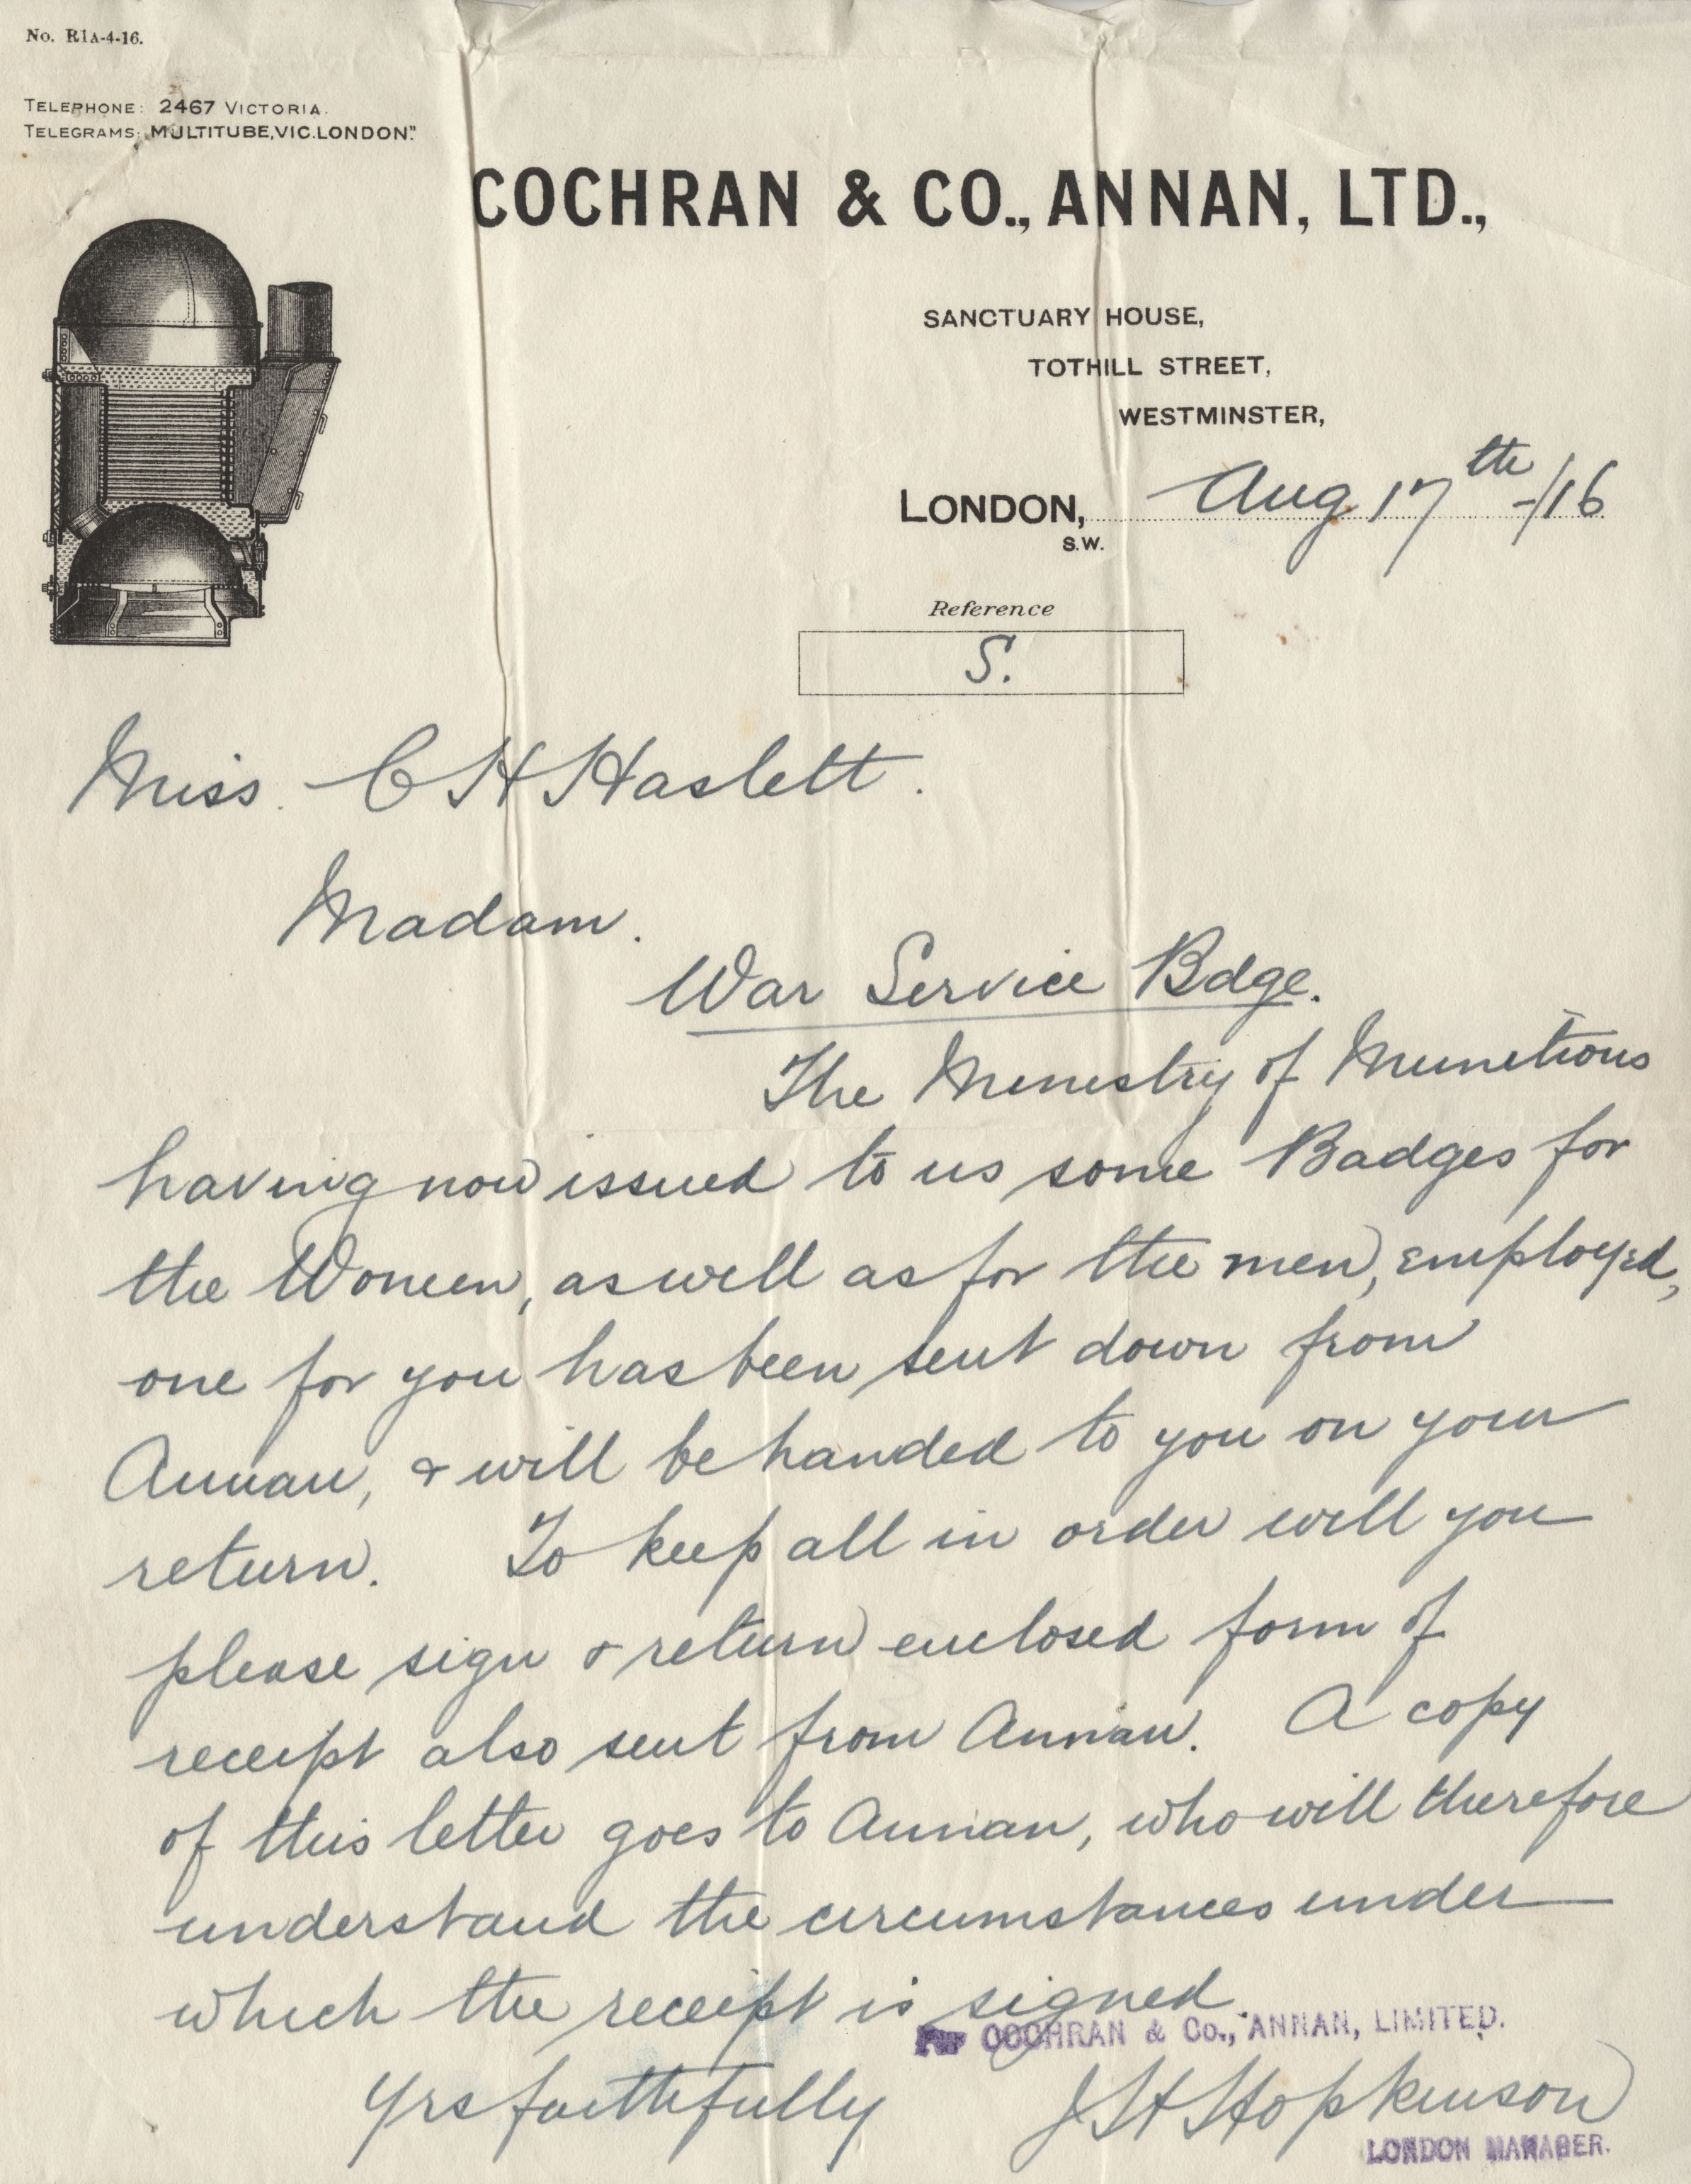 No. R1A-4-16.
TELEPHONE: 2467 VICTORIA.
TELEGRAMS: MULTITUBE, VIC. LONDON."
COCHRAN & CO., ANNAN, LTD.,
SANCTUARY HOUSE,
TOTHILL STREET,
WESTMINSTER,
LONDON, Aug 17th /16
S.W.
Reference
S.
Miss. C H Haslett.
Madam.
War Service Bdge.
The Ministry of Munitions
having now issued to us some Badges for
the Women, as well as for the men, employed,
one for you has been sent down from
Annan, & will be handed to you on your
return. To keep all in order will you
please sign & return enclosed form of
receipt also sent from Annan. A copy
of this letter goes to Annan, who will therefore
understand the circumstances under
which the receipt is signed.
For COCHRAN & Co., ANNAN, LIMITED.
Yrs faithfully J H Hopkinson
LONDON MANAGER.